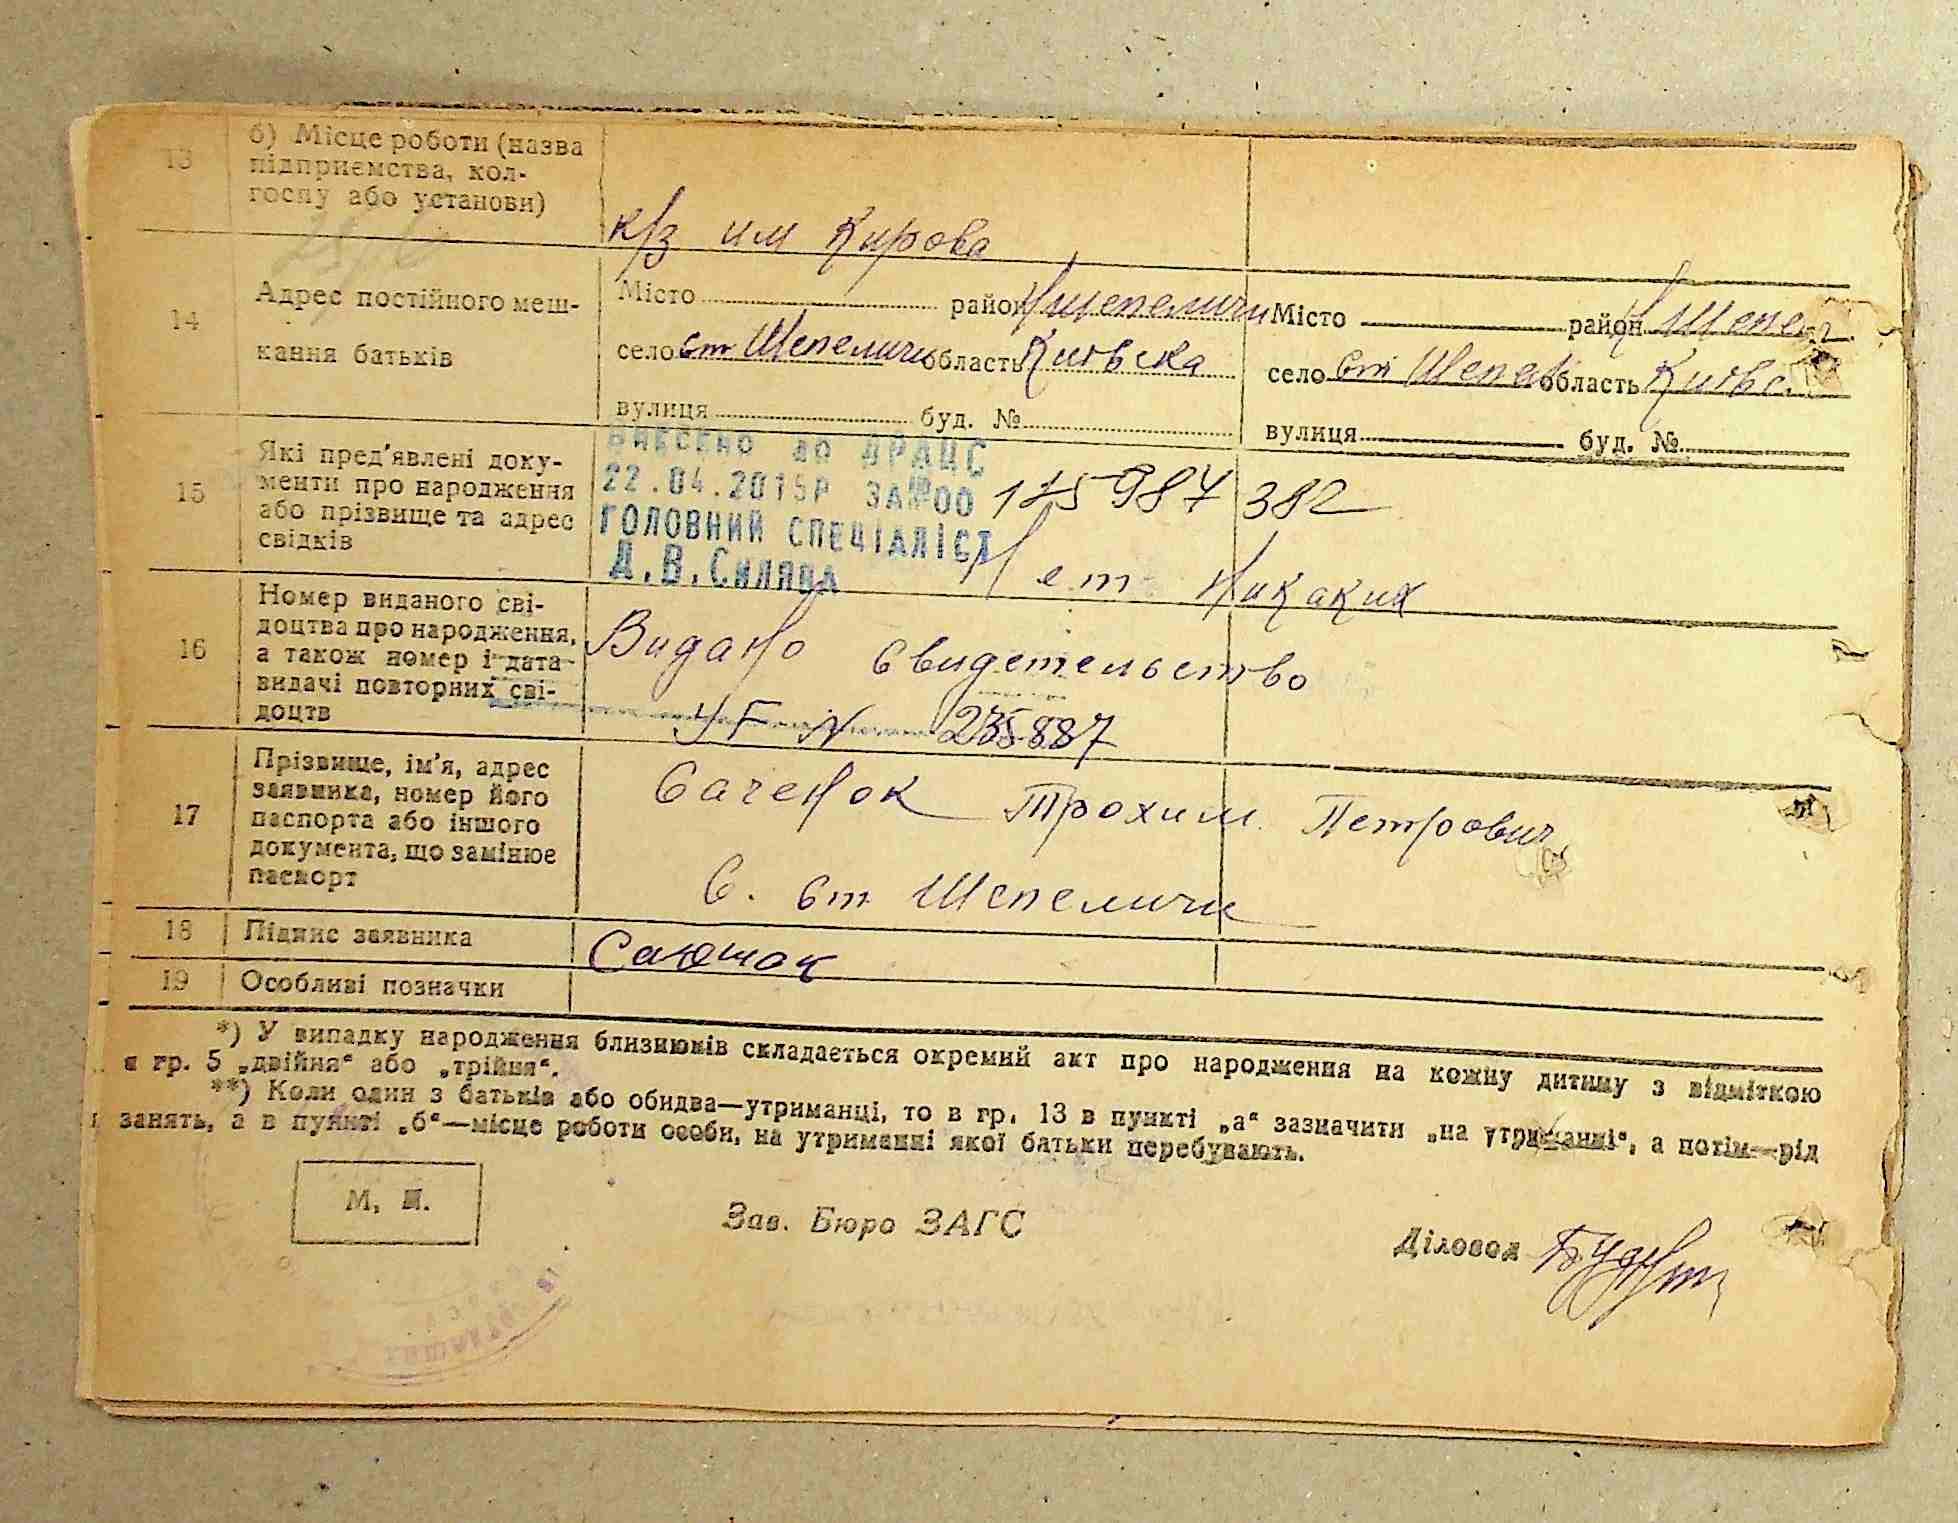 13 б) Місце роботи (назва
підприємства, кол-
госпу або установи)
к/з им Кирова
14 Адрес постійного меш-
кання батьків
Місто район Н Шепеличи
село ст Шепеличи область Київска
вулиця буд. №
Місто район Н Шепел
село ст Шепел область Київс.
вулиця буд. №
15 Які пред'явлені доку-
менти про народження
або прізвище та адрес
свідків
Внесено до ДРАЦС
22.04.2015р за №00 175987 382
Головний спеціаліст
Д.В.Силява
Нет Никаких
16 Номер виданого сві-
доцтва про народження,
а також номер і дата
видачі повторних сві-
доцтв
Видано Свидетельство
УГ N 235887
17 Прізвище, ім'я, адрес
заявника, номер його
паспорта або іншого
документа, що замінює
паспорт
Саченок Трохим Петрович
С. ст Шепеличи
18 Підпис заявника
19 Особливі позначки
*) У випадку народження близнюків складається окремий акт про народження на кожну дитину з відміткою
в гр. 5 „двійня“ або „трійня“.
**) Коли один з батьків або обидва—утриманці, то в гр. 13 в пункті „а“ зазначити „на утриманні“, а потім—рід
занять, а в пункті „б“—місце роботи особи, на утриманні якої батьки перебувають.
М. П.
Зав. Бюро ЗАГС
Діловод